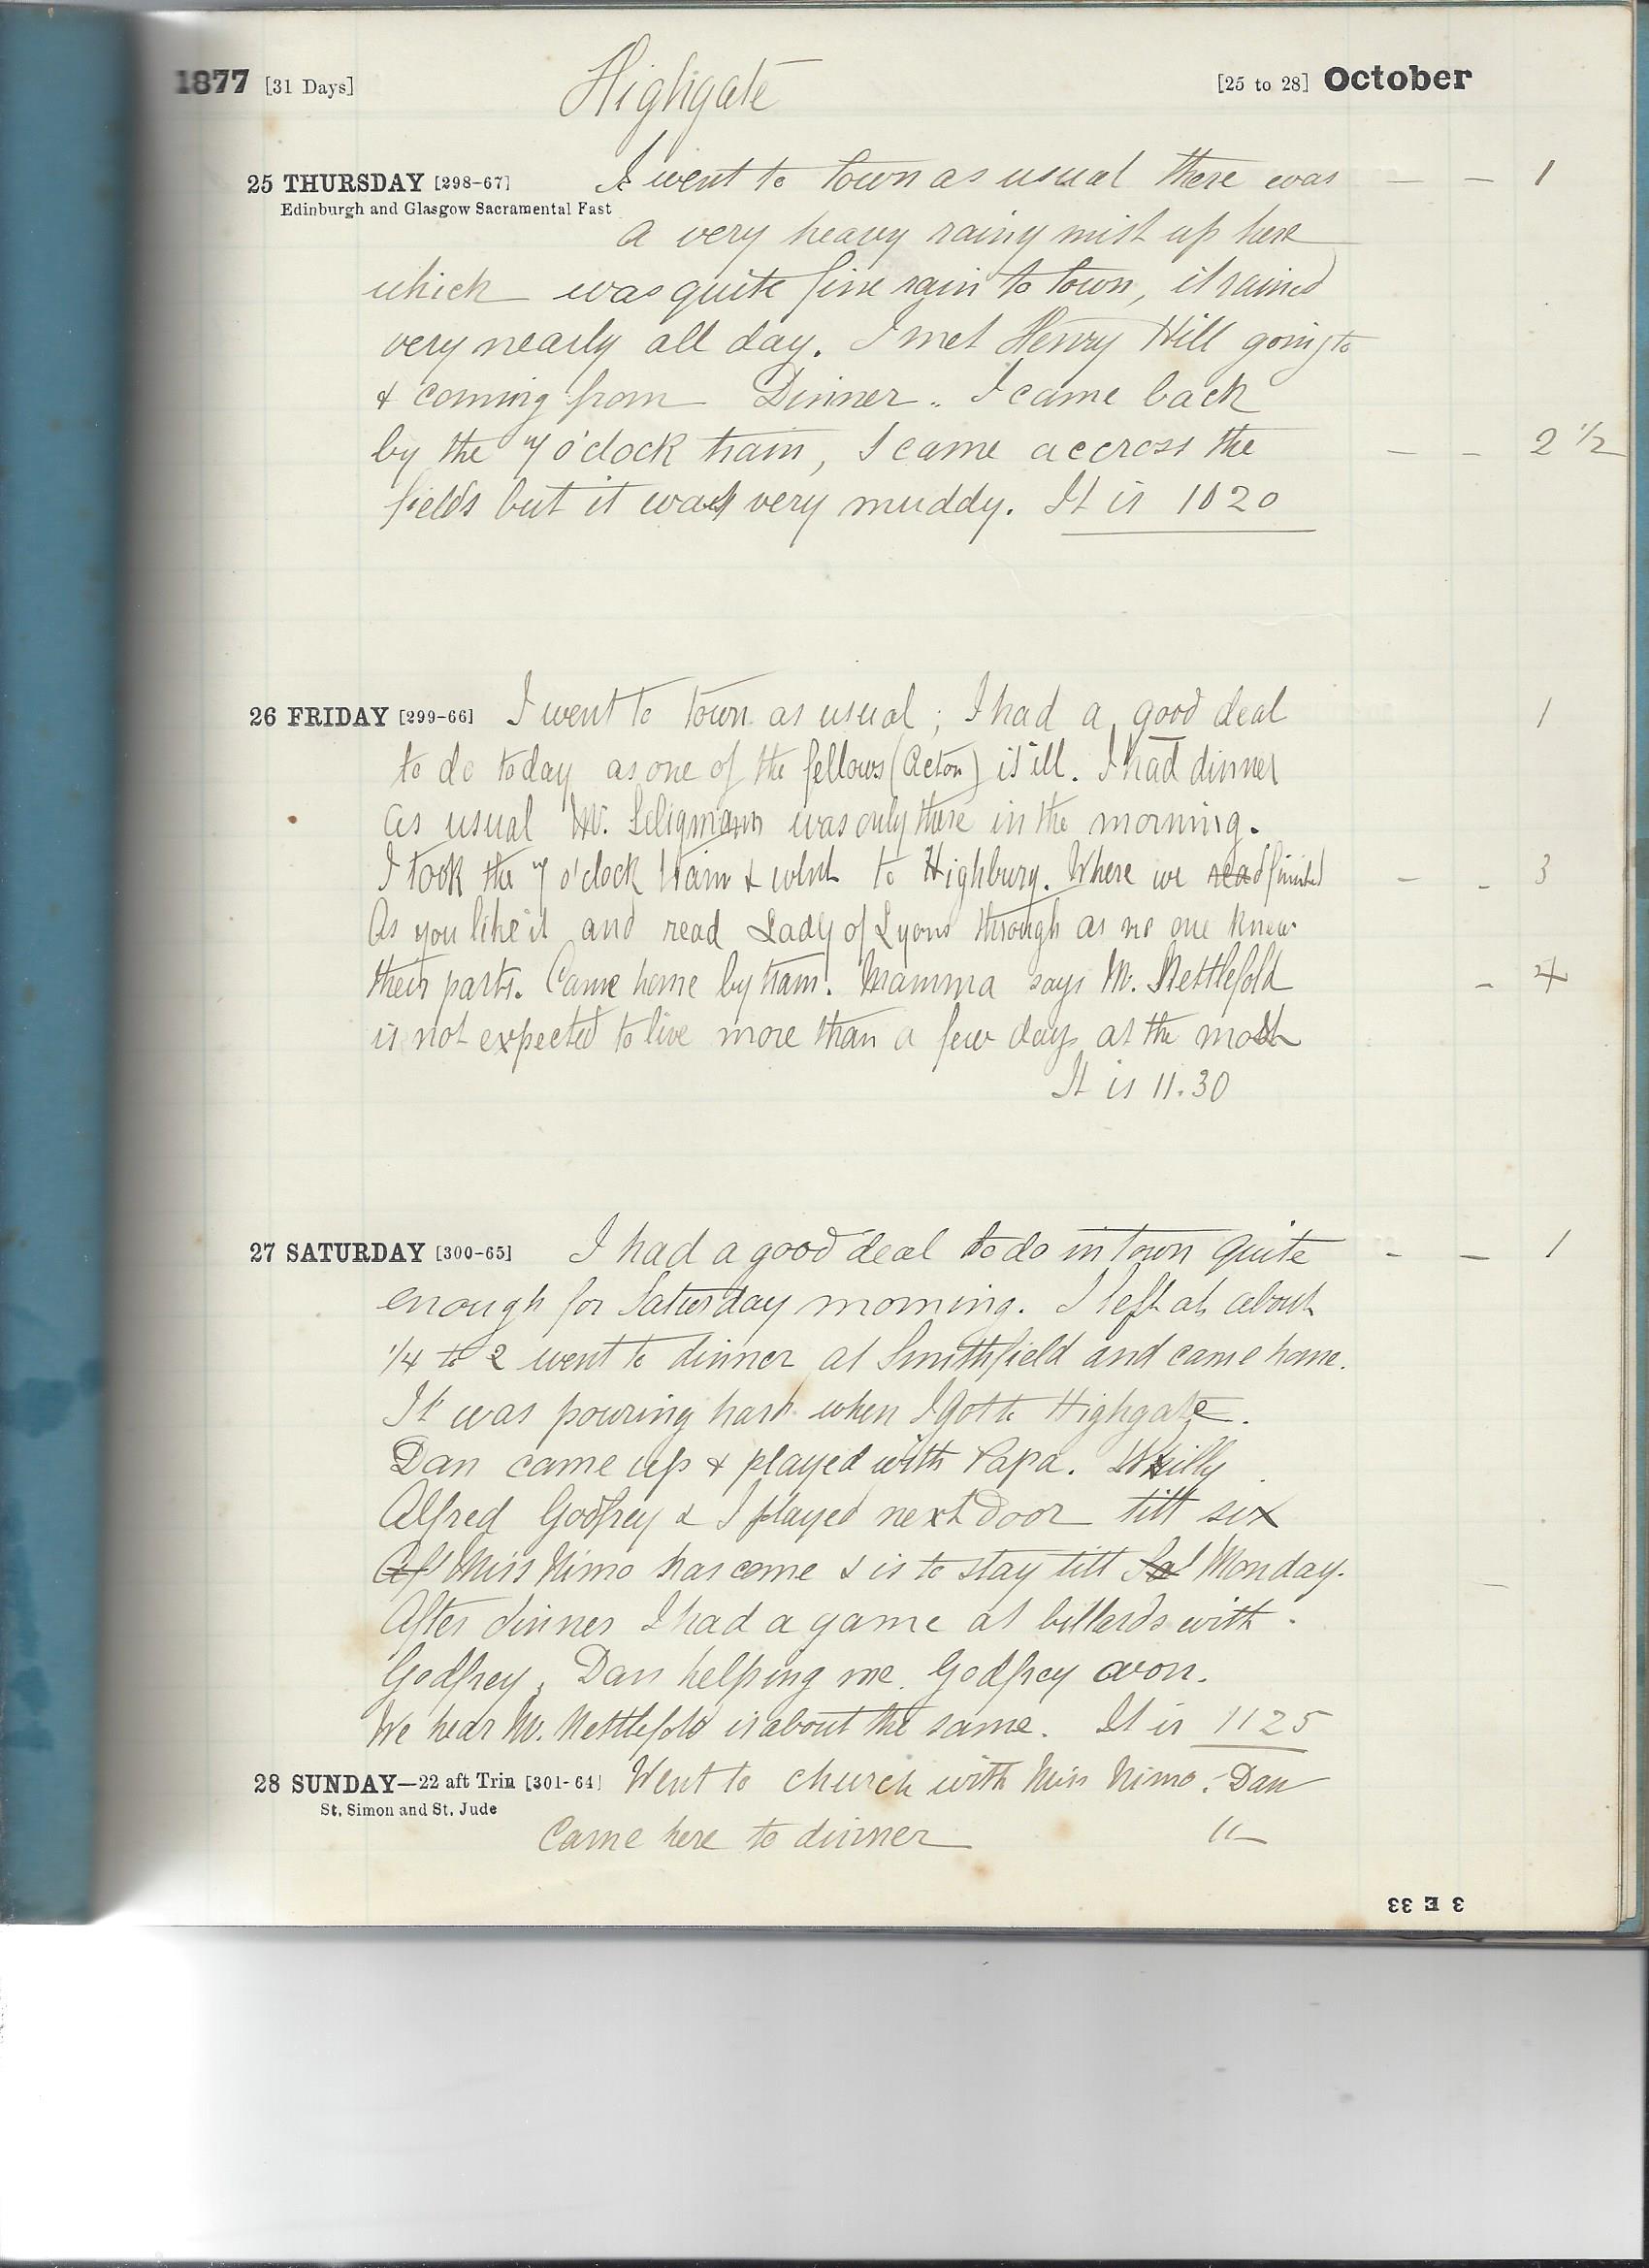 1877 [31 Days] Highgate [25 to 28] October
25 THURSDAY [298-67] I went to town as usual there was — — 1
Edinburgh and Glasgow Sacramental Fast
a very heavy rainy mist up here
which was quite fine rain to town, it rained
very nearly all day. I met Henry Hill going to
& coming from Dinner. I came back
by the 7 o'clock train, I came accross the — — 2 1/2
fields but it was very muddy. It is 10 20
26 FRIDAY [299-66] I went to town as usual; I had a good deal 1
to do today as one of the fellows (Acton) is ill. I had dinner
as usual Mr. Seligmann was only there in the morning.
I took the 7 o'clock train & went to Highbury. Where we read finished — — 3
As you like it and read Lady of Lyons through as no one knew
their parts. Came home by tram. Mamma says Mr. Nettlefold — 4
is not expected to live more than a few days at the most
It is 11.30
27 SATURDAY [300-65] I had a good deal to do in town quite — — 1
enough for Saturday morning. I left at about
1/4 to 2 went to dinner at Smithfield and came home.
It was pouring hard when I got to Highgate.
Dan came up & played with Papa. Willy
Alfred Godfrey & I played next door till six
Af Miss Nimo has come & is to stay till Sat Monday.
After dinner I had a game at billards with
Godfrey, Dan helping me. Godfrey won.
We hear Mr. Nettlefold is about the same. It is 11 25
28 SUNDAY—22 aft Trin [301-64] Went to church with Miss Nimo. Dan
St. Simon and St. Jude
Came here to dinner 11—
3 E 33